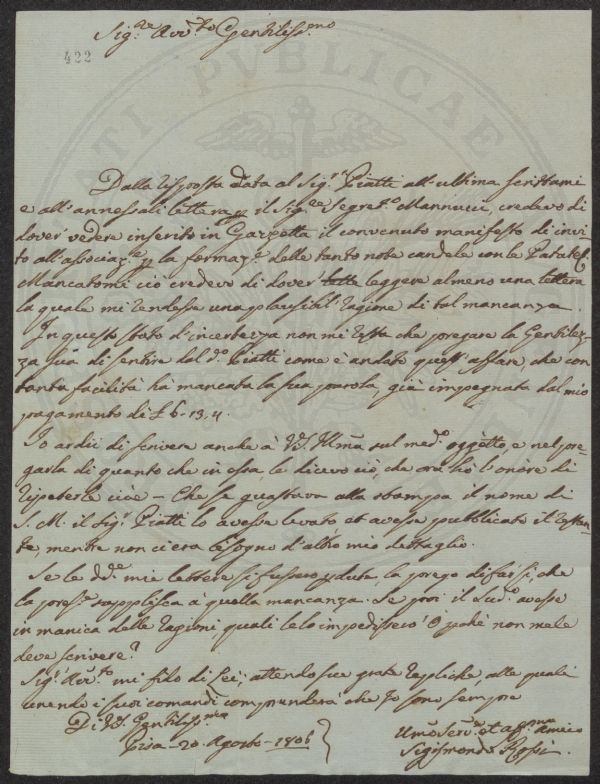 Sig.re Avv.to Gentiliss.mo
422
Dalla risposta data al Sig.r Piatti all'ultima scrittami
e all'annessali lettera p il Sig.re Segret.o Mannucci, credevo di
dover vedere inserito in Gazzetta il convenuto manifesto di invi-
to all'associaz.e p la formaz.e delle tanto note candele con le Patate.
Mancatomi ciò credevo di dover leggere almeno una lettera
la quale mi rendesse una plausibil ragione di tal mancanza.
In questo stato d'incertezza non mi resta che pregare la Gentilez-
za sua di sentire dal d.o Piatti come è andato quest'affare, che con
tanta facilità ha mancata la sua parola, già impegnata dal mio
pagamento di £ 6-13,4.
Io ardii di scrivere anche à VS. Ill.ma sul med.o oggetto, e nel pre-
garla di quanto che in essa, le dicevo ciò, che ora hò l'onore di
ripeterle cioè - Che se guastava alla stampa il nome di
S. M. il Sig.r Piatti lo avesse levato et avesse pubblicato il restan-
te, mentre non ci era bisogno d'altro mio dettaglio.
Se le d.e mie lettere si fussero pdute, la prego di farsi, che
la pres.e supplisca à quella mancanza. Se poi il sud.o avesse
in manica delle ragioni, quali lo impedissero pchè non me le
deve scrivere?
Sig.r Avv.to mi fido di Lei; attendo sue grate repliche, alle quali
unendo i suoi comandi comprenderà che Io sono sempre
Di VS. Gentiliss.ma
Pisa - 20. Agosto - 1806
Umo Serv.e et aff.mo amico
Sigismondo Rossi
ATI PVBLICAE